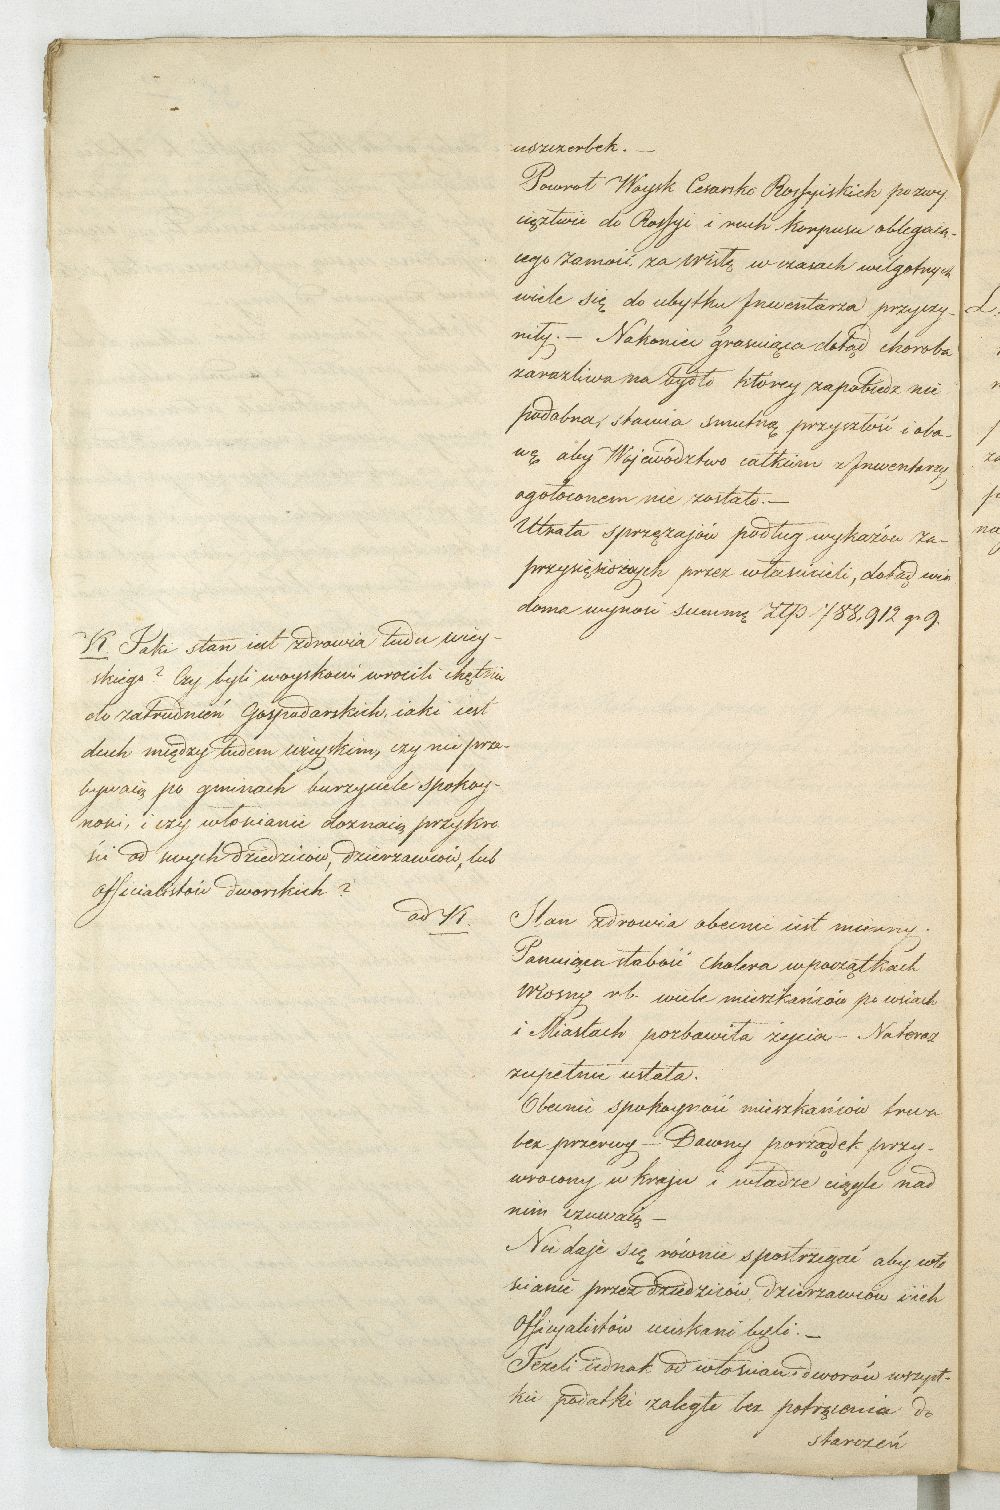 uszczerbek. —
Powrot Woysk Cesarsko Rossyiskich po zwy
cięztwie do Rossyi i ruch korpusu oblegaią-
cego Zamość za Wisłę w czasach wilgotnych
wiele się do ubytku Inwentarza przyczy-
niły. — Nakoniec grasuiąca dotąd choroba
zarazliwa na bydło którey zapobiedz nie
podobna, stawia smutną przyszłość i oba-
wę aby Województwo całkiem z Inwentarzy
ogołoconem nie zostało. —
Utrata sprzężajów podług wykazów za-
przysiężonych przez właścicieli, dotąd wia
doma wynosi summę Złp. 788,912 gr 9.
K Jaki stan iest zdrowia ludu wiey-
skiego? Czy byli woyskowi wrócili chętnie
do zatrudnień Gospodarskich, iaki iest
duch między ludem wieyskim, czy nie prze-
bywaią po gminach burzyciele spokoy-
ności, i czy włościanie doznaią przykro
ści od swych dziedziców, dzierzawców, lub
officialistów dworskich?
ad K.
Stan zdrowia obecnie iest mierny.
Panuiąca słabość cholera w początkach
Wiosny r.b. wiele mieszkańców po wsiach
i Miastach pozbawiła życia — Na teraz
zupełnie ustała.
Obecnie spokoyność mieszkańców trwa
bez przerwy — Dawny porządek przy-
wrocony w kraju i władze ciągle nad
nim czuwaią —
Nie daje się równie spostrzegać aby wło
ścianie przez dziedziców, dzierzawców i ich
Officyalistów uciskani byli. —
Jeżeli iednak od włościan i dworów wszyst-
kie podatki zaległe bez potrącenia do
starczeń